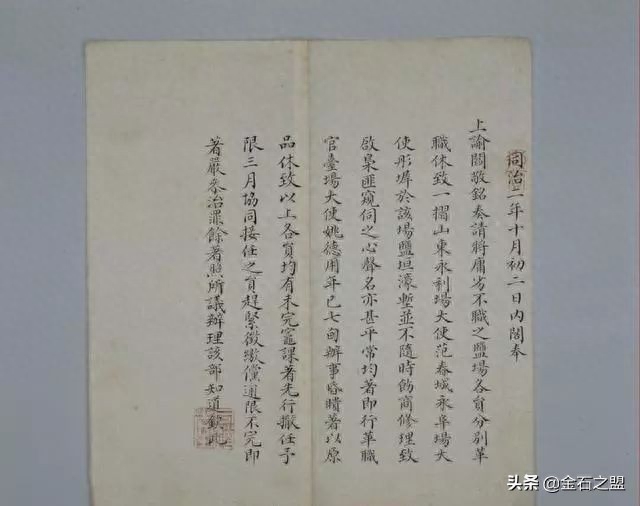 同治二年十月初二日內閣奉
上諭閻敬銘奏請將庸劣不職之鹽場各員分別革
職休致一摺山東永利場大使范春城永阜場大
使彤墀於該場鹽垣濠塹並不隨時飭商修理致
啟梟匪窺伺之心聲名亦甚平常均著即行革職
官臺場大使姚德用年已七旬辦事昏瞶著以原
品休致以上各員均有未完竈課著先行撤任予
限三月協同接任之員趕緊徵繳儻逾限不完即
著嚴參治罪餘著照所議辦理該部知道欽此
头条 @金石之盟